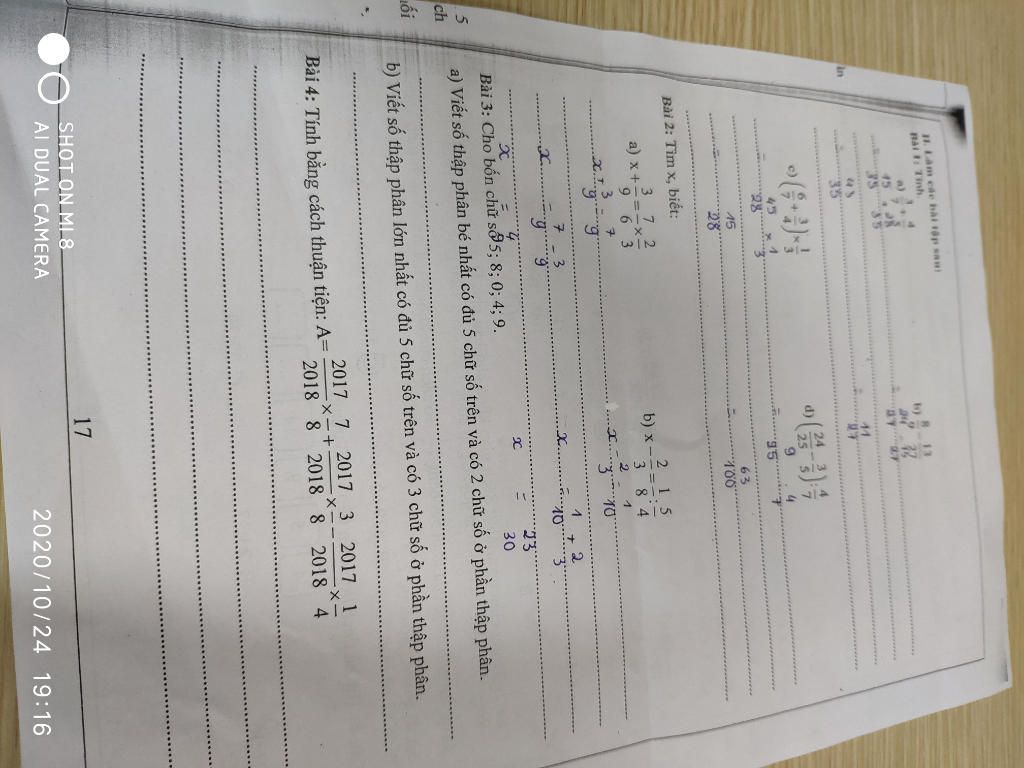 II. Làm các bài tập sau:
Bài 1: Tính
a) 3/7 + 4/5
b) 8/9 - 13/27
= 15/35 + 28/35
= 24/27 - 13/27
= 43/35
= 11/27
c) (6/7 + 3/4) × 1/3
d) (24/25 - 3/5) : 4/7
= 45/28 × 1/3
= 9/25 : 4/7
= 15/28
= 63/100
Bài 2: Tìm x, biết:
a) x + 3/9 = 7/6 × 2/3
b) x - 2/3 = 1/8 : 5/4
x + 3/9 = 7/9
x - 2/3 = 1/10
x = 7/9 - 3/9
x = 1/10 + 2/3
x = 4/9
x = 23/30
Bài 3: Cho bốn chữ số 5; 8; 0; 4; 9.
a) Viết số thập phân bé nhất có đủ 5 chữ số trên và có 2 chữ số ở phần thập phân.
b) Viết số thập phân lớn nhất có đủ 5 chữ số trên và có 3 chữ số ở phần thập phân.
Bài 4: Tính bằng cách thuận tiện: A = 2017/2018 × 7/8 + 2017/2018 × 3/8 - 2017/2018 × 1/4
17
5
ch
ối
SHOT ON MI 8
AI DUAL CAMERA
2020/10/24 19:16